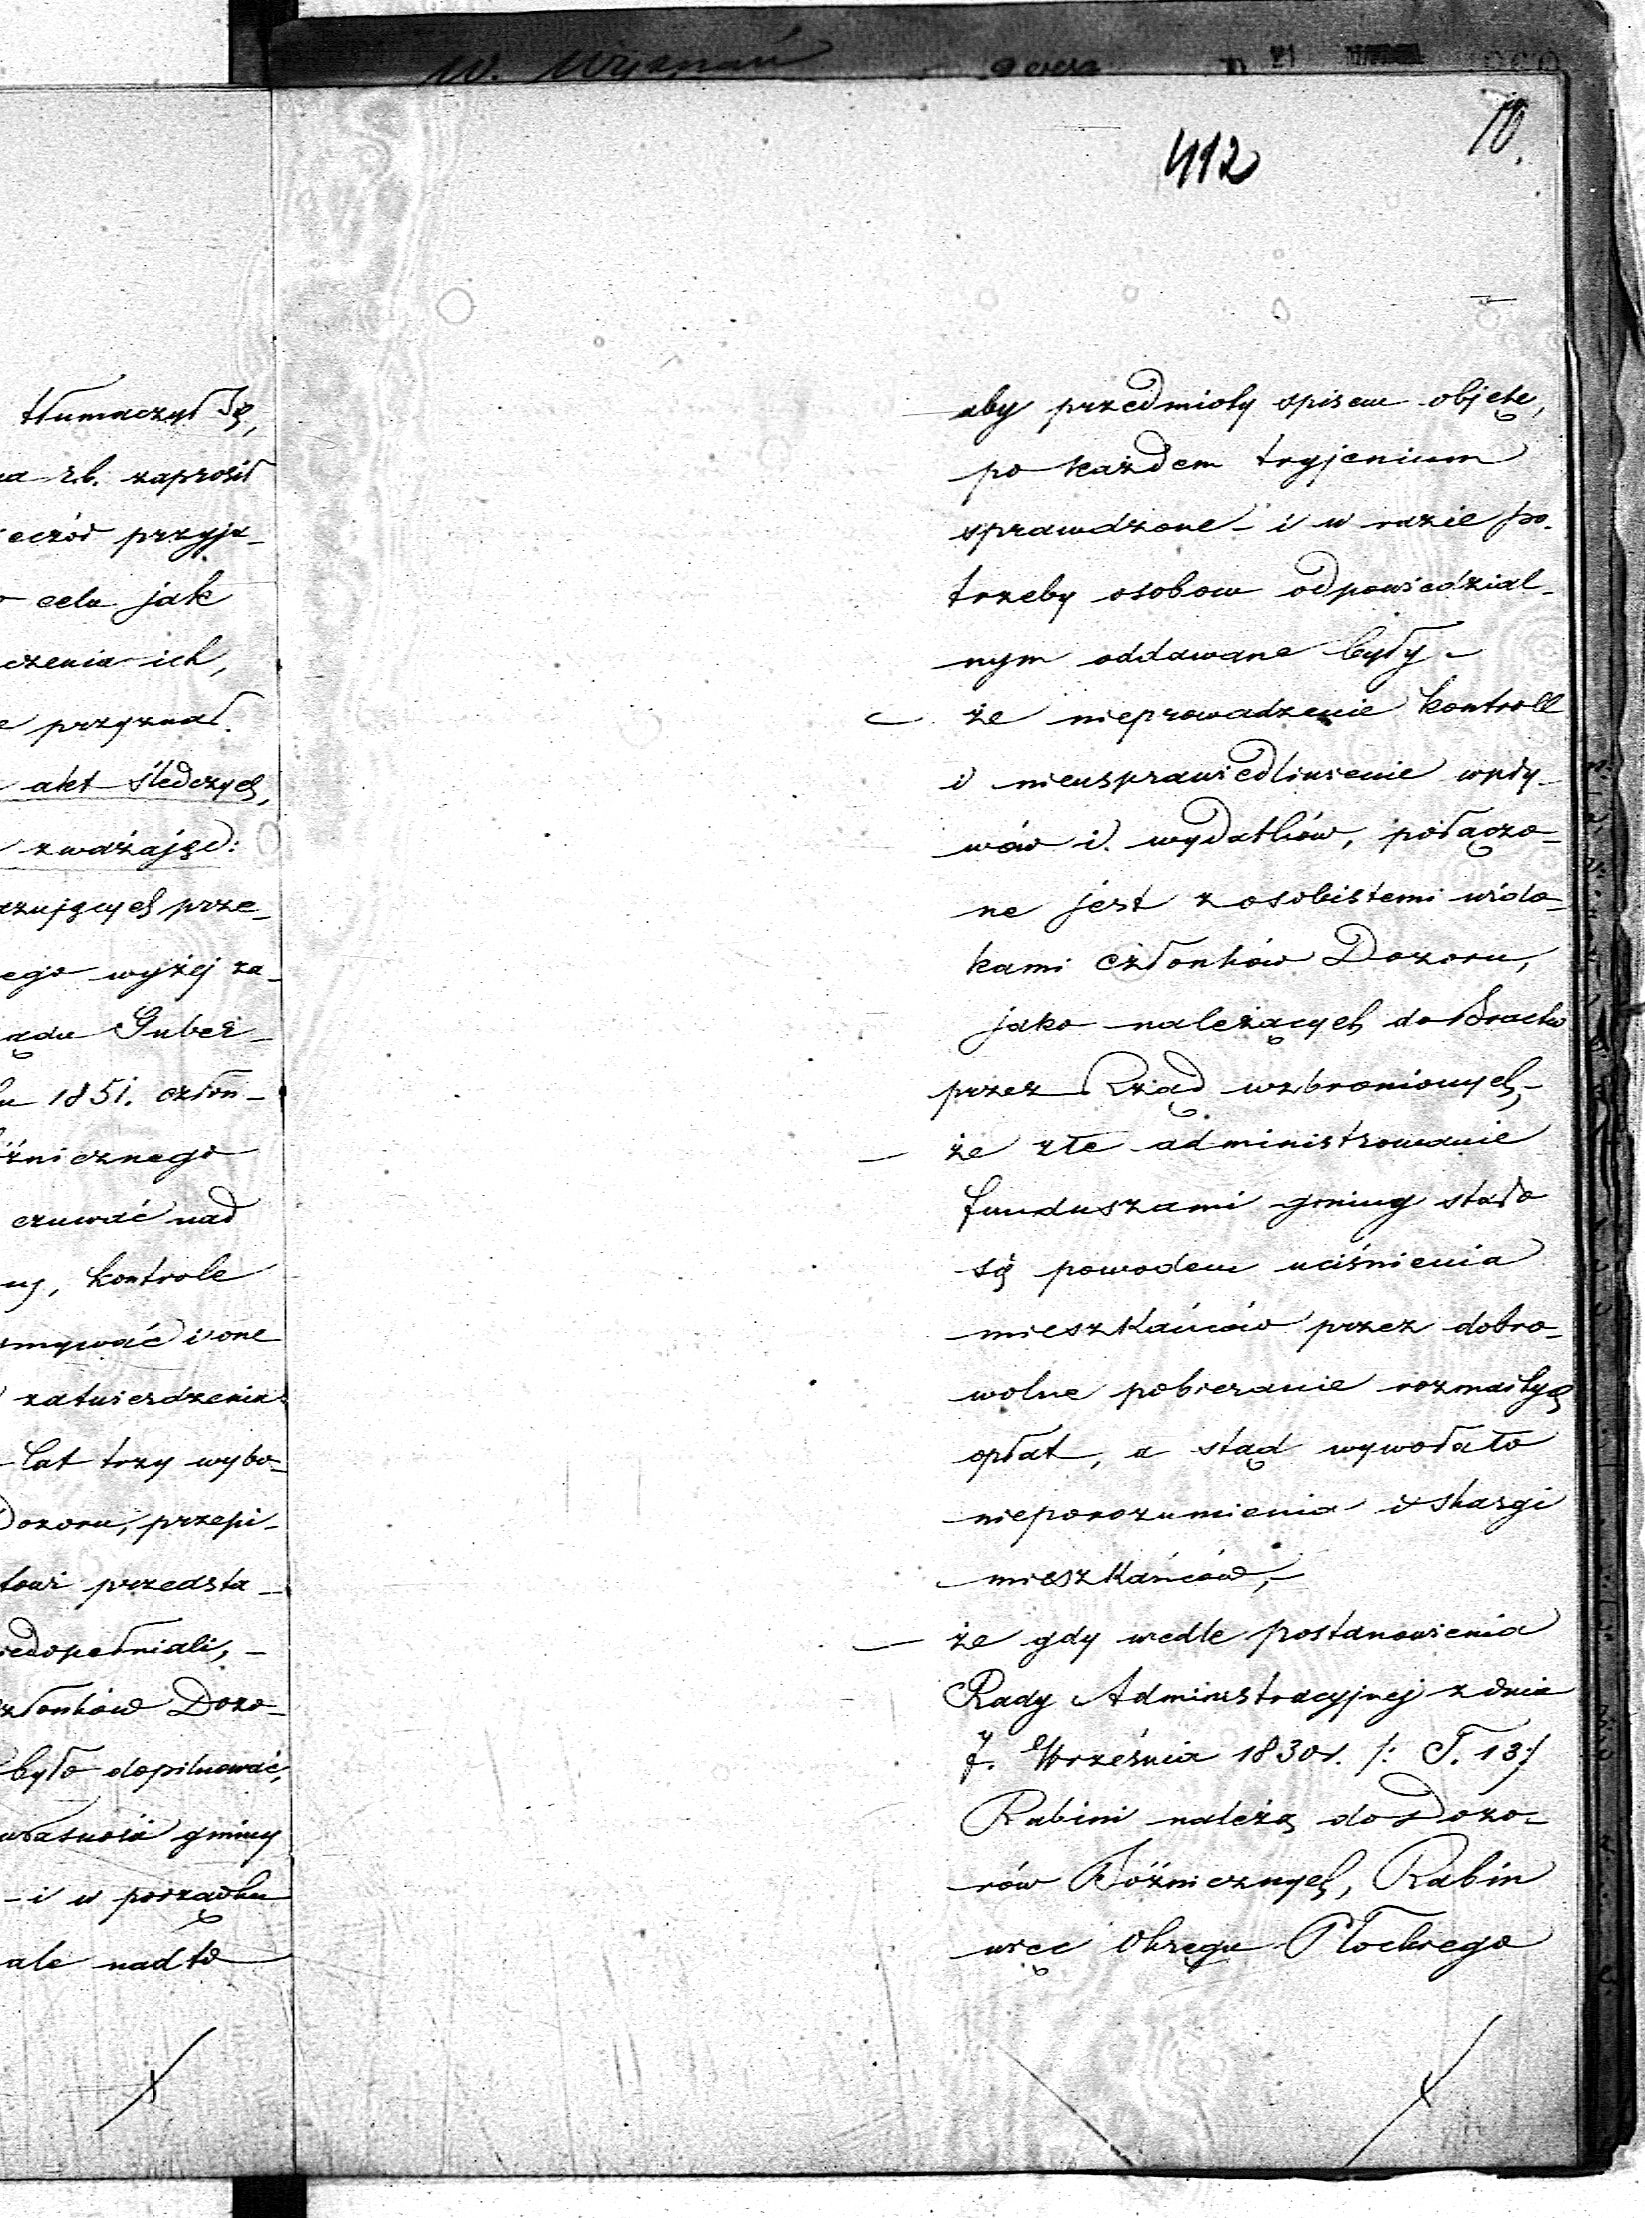 412
10.
tłumaczył Się,
na r.b. zaprosił
eczór przyja-
celu jak
czenia ich,
przyznał.
akt śledczych,
zważając:
zujących prze-
ego wyżej za-
ądu Guber-
1851. człon-
źnicznego
czuwać nad
ny, kontrole
mywać i one
zatwierdzenia
lat trzy wybo-
Dozoru, przepi-
towi przedsta-
iedopełniali,-
złonków Dozo-
było dopilnować,
własność gminy
- i w porządku
ale nadto
aby przedmioty spisem objęte,
po każdem tryjenium
sprawdzone - i w razie po-
trzeby osobom odpowiedzial-
nym oddawane były -
- że nieprowadzenie kontroll
i nieusprawiedliwienie wpły-
wów i wydatków, połączo-
ne jest z osobistemi wido-
kami członków Dozoru,
jako należących do Bractw
przez Rząd wzbronionych,-
- że złe administrowanie
funduszami gminy stało
się powodem uciśnienia
mieszkańców przez dobro-
wolne pobieranie rozmaitych
opłat, a stąd wywołało
nieporozumienia i skargi
mieszkańców,-
- że gdy wedle postanowienia
Rady Administracyjnej z dnia
7. Września 1830 r. /: T. 13 :/
Rabini należą do Dozo-
rów Bóźnicznych, Rabin
więc Okręgu Płockiego